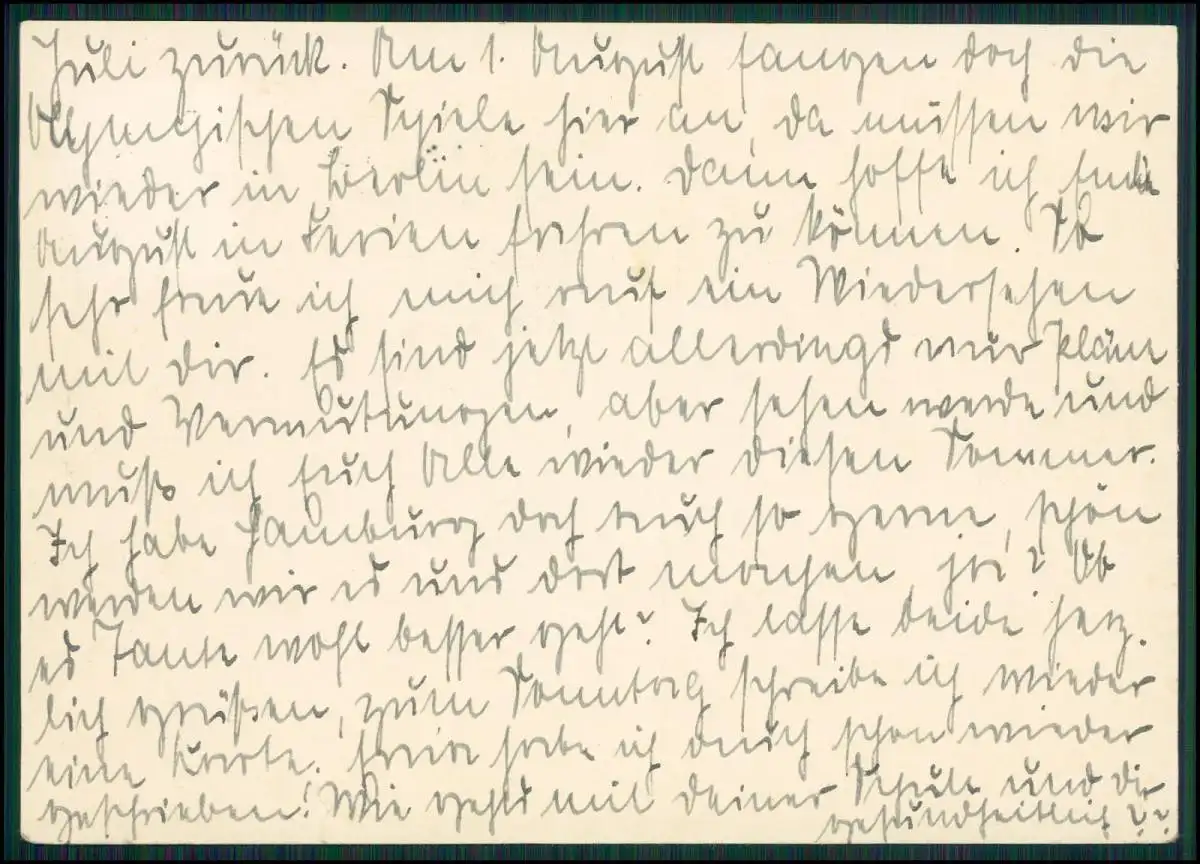 Juli zurück. Am 1. August fangen doch die
Olympischen Spiele hier an, da müssen wir
wieder in Berlin sein. Dann hoffe ich Ende
August in Ferien fahren zu können. So
sehr freue ich mich auf ein Wiedersehen
mit dir. Es sind jetzt allerdings nur Pläne
und Vermutungen, aber sehen werde und
muß ich Euch Alle wieder diesen Sommer.
Ich habe Hamburg doch auch so gerne, schön
werden wir es uns dort machen, ja? Ob
es Tante wohl besser geht? Ich lasse beide herz.
lich grüßen, zum Sonntag schreibe ich wieder
eine Karte. habe ich auch schon wieder
geschrieben! Wie gehts mit deiner Schule und dir
gesundheitlich??